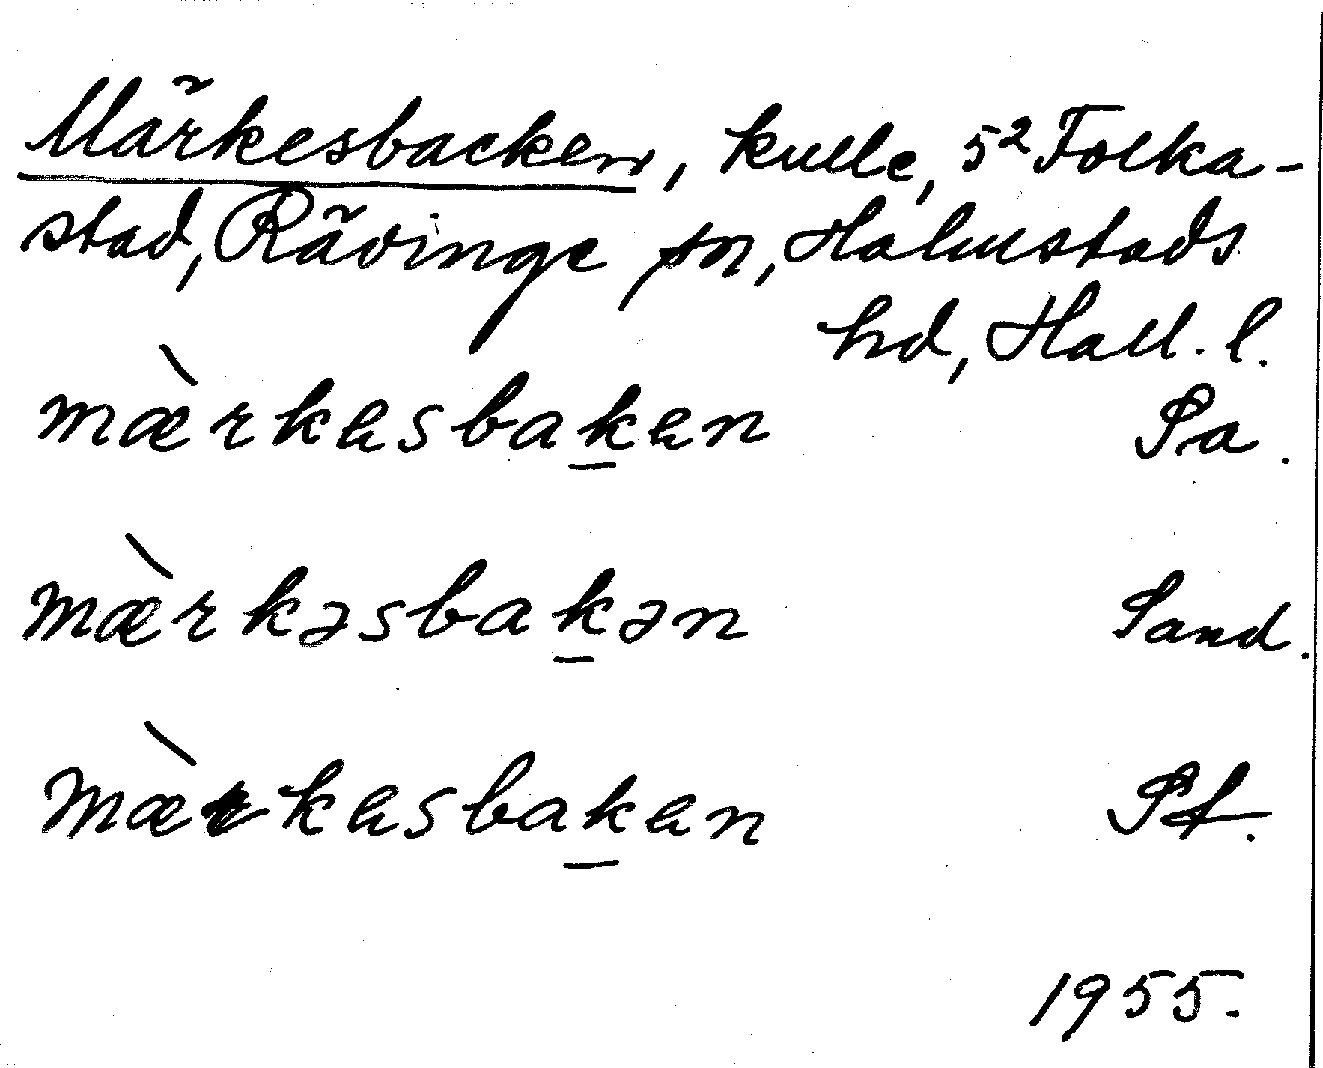 Märkesbacken, kulle, 5² Folka-
stad, Rävinge sn, Halmstads
hd, Hall. l.
mæ̀rkesbak̲en Pa.
mæ̀rkəsbak̲ən Sand.
mæ̀rkesbak̲en Pf.
1955.